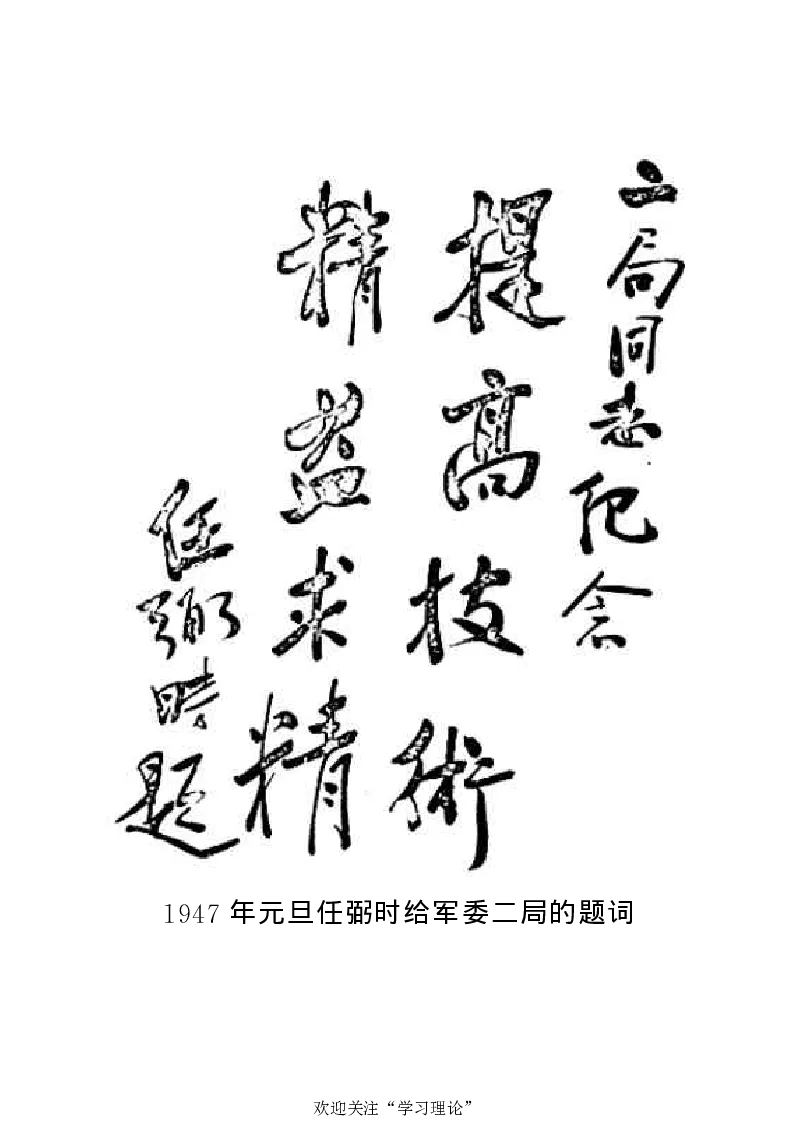 二局同志纪念
提高技術
精益求精
任弼时題
1947 年元旦任弼时给军委二局的题词
欢迎关注“学习理论”